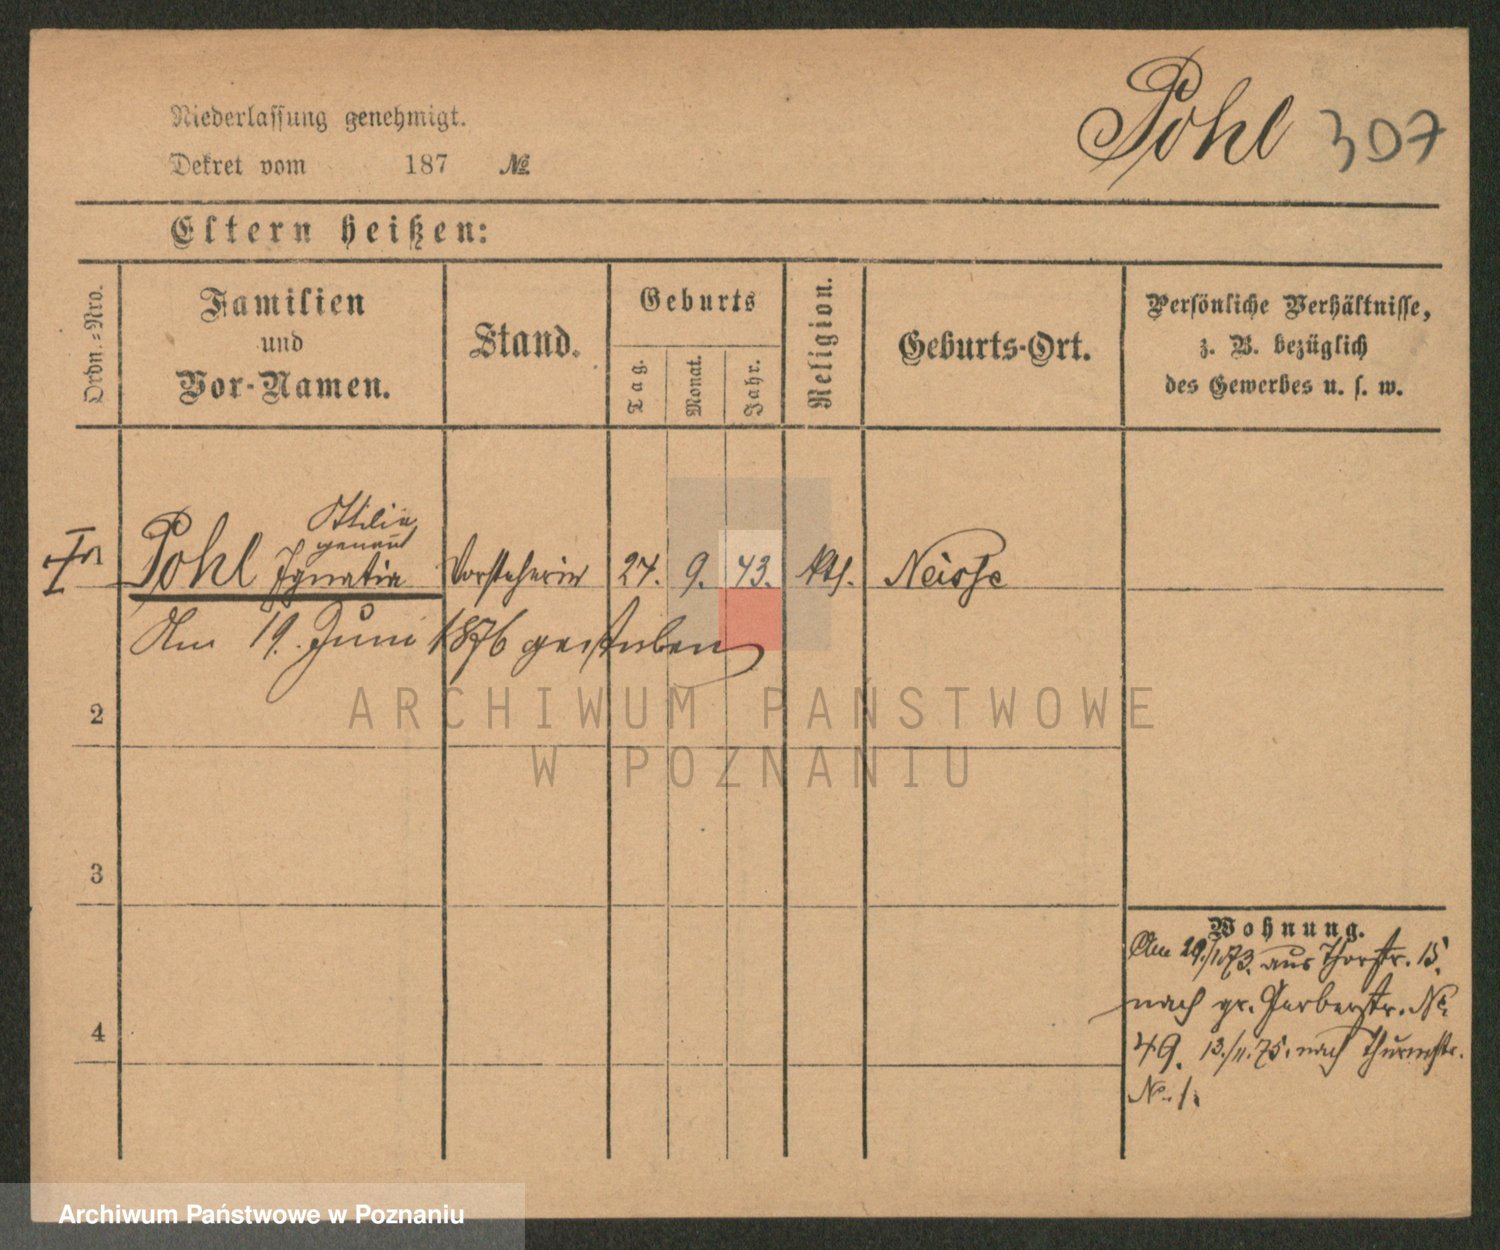 Niederlassung genehmigt.
Pohl 307
Dekret vom 187 №
Eltern heißen:
Ordn.-Nro.
Familien
und
Vor-Namen.
Stand.
Geburts
Tag.
Monat.
Jahr.
Religion.
Geburts-Ort.
Persönliche Verhältnisse,
z. B. bezüglich
des Gewerbes u. s. w.
Ottilie
genannt
Pohl Ignatia Vorsteherin 24. 9. 43. kth. Neisse
Am 19. Juni 1876 gestorben
2
3
4
Wohnung.
Am 29./1.73. aus Thorstr. 15.
nach gr. Gerberstr. No.
49. 13./11.75. nach Thurmstr.
No. 1.
ARCHIWUM PAŃSTWOWE
W POZNANIU
Archiwum Państwowe w Poznaniu